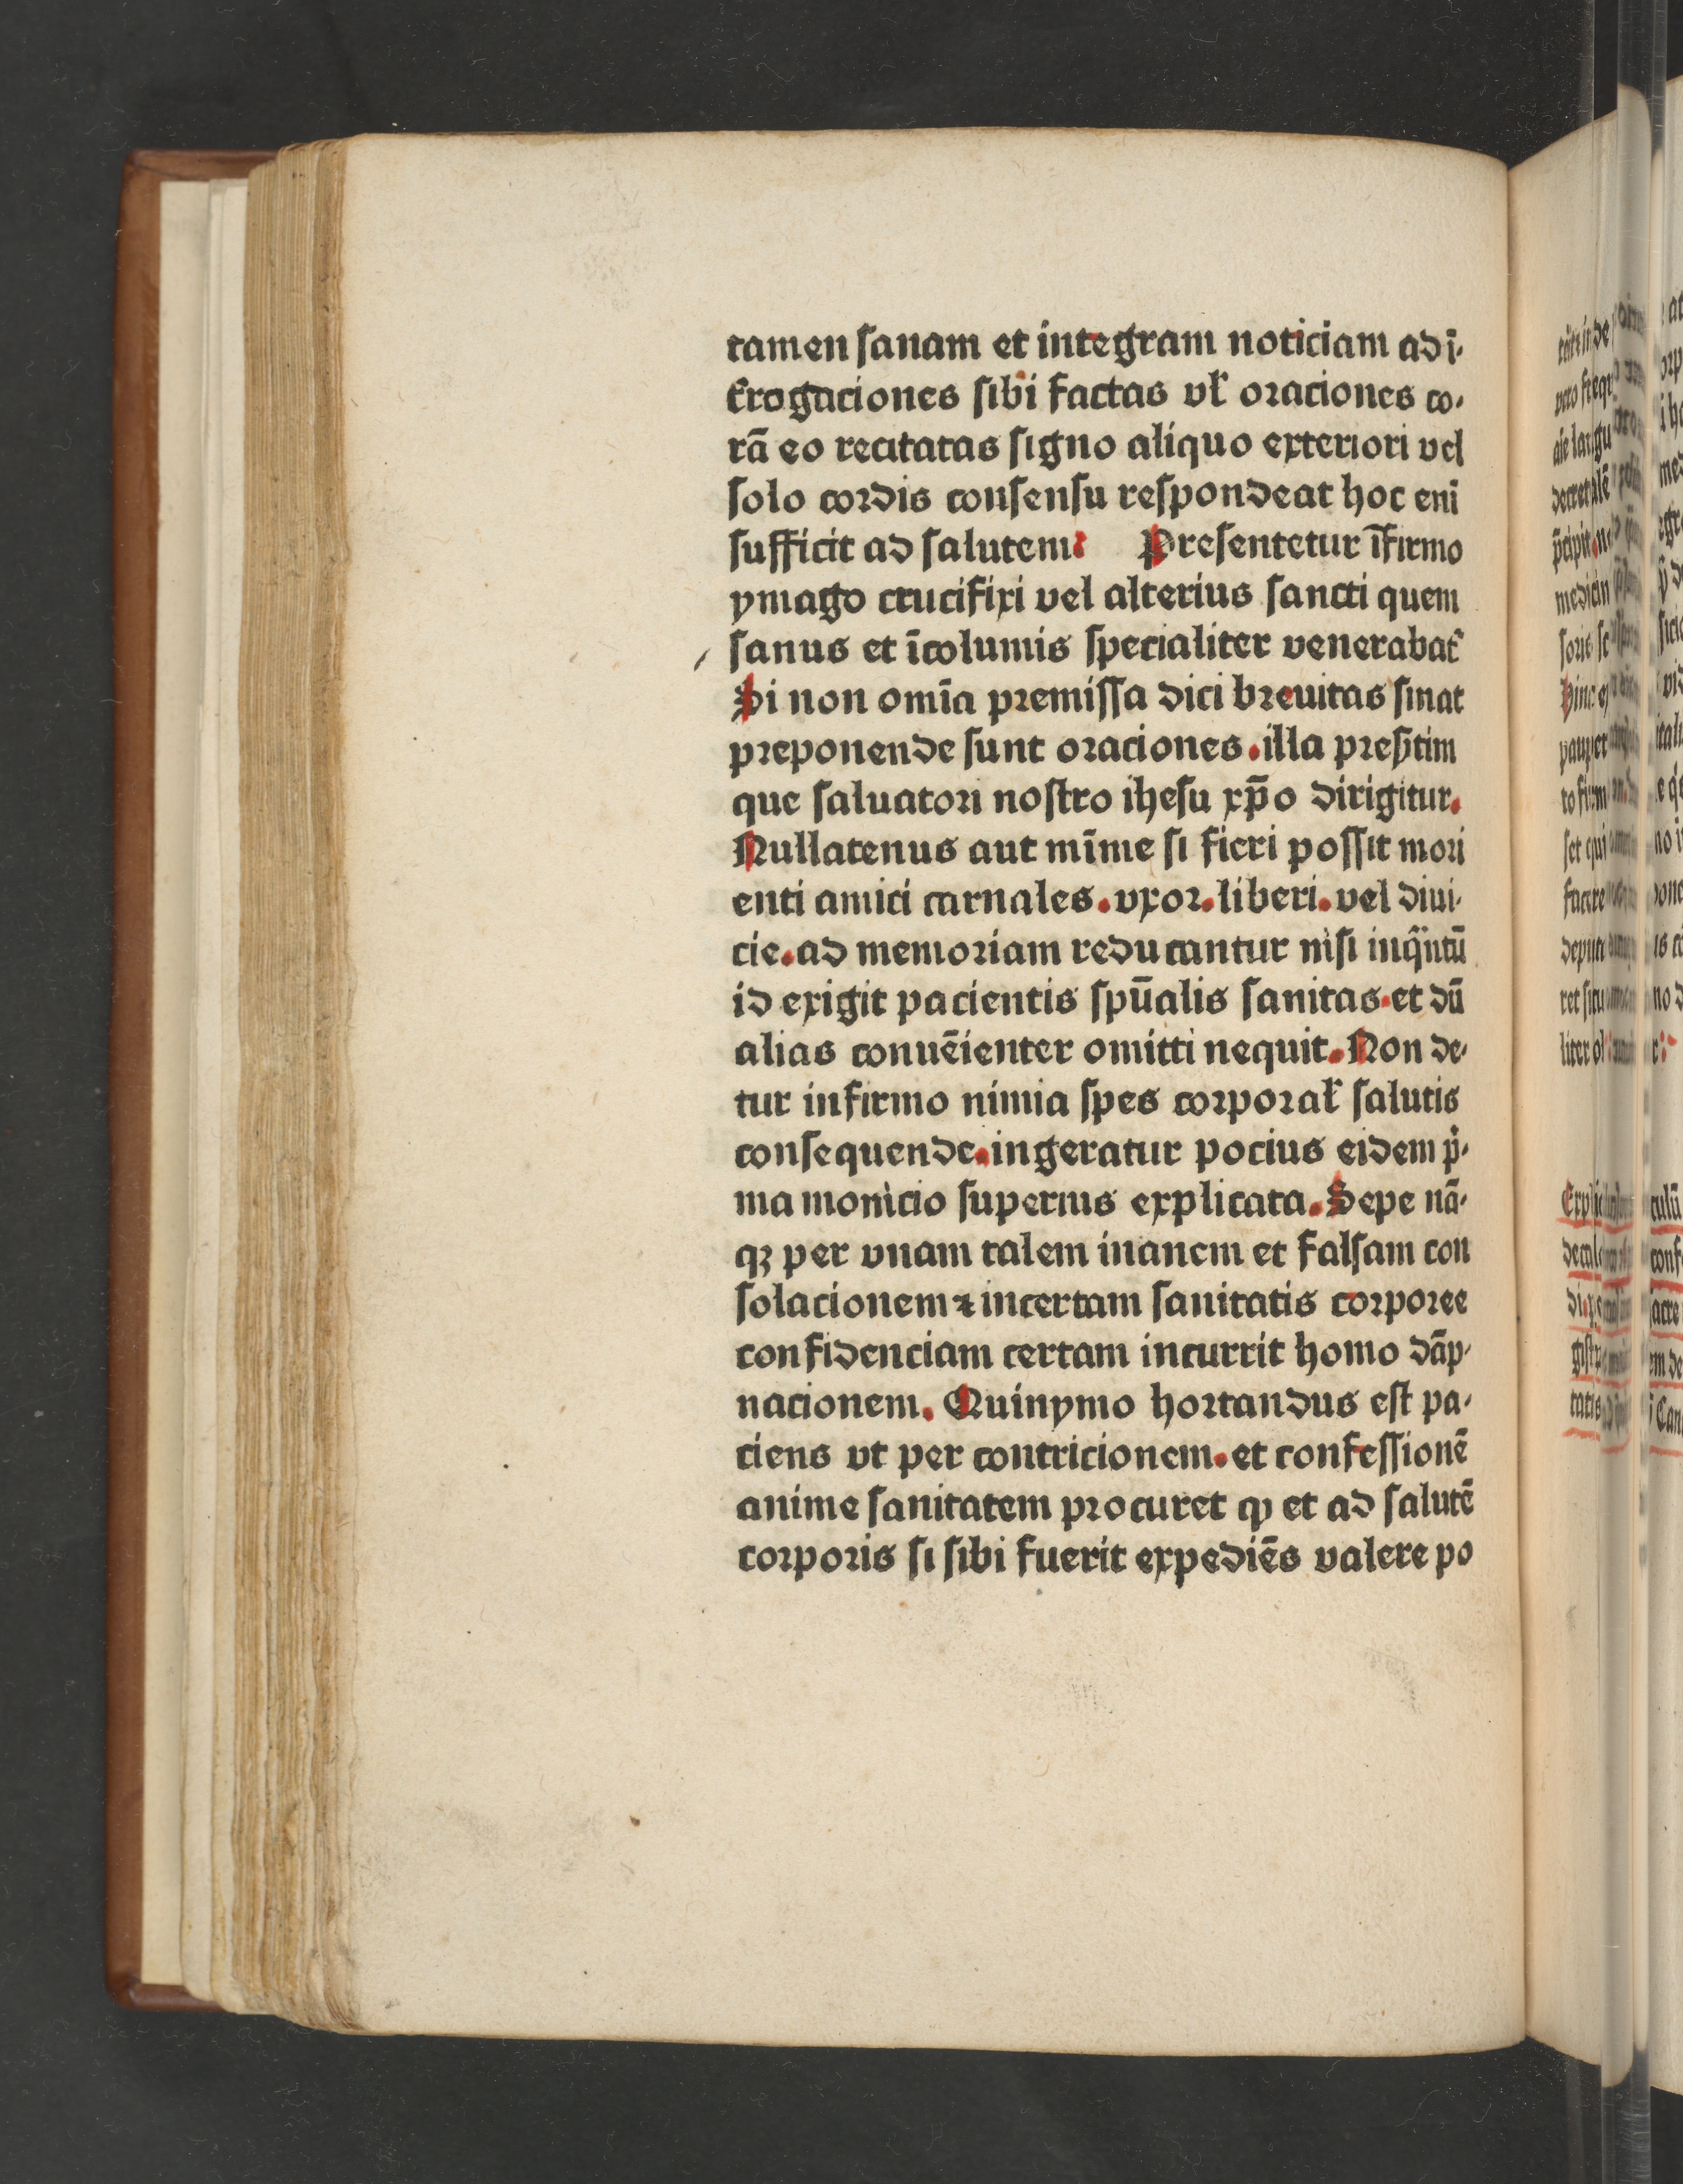 tamen sanam et integram noticiam ad ī-
terogaciones sibi factas vł oraciones co-
rā eo recitatas signo aliquo exteriori vel
solo cordis consensu respondeat hoc eni̅
sufficit ad salutem: Presentetur īfirmo
ymago crucifixi vel alterius sancti quem
sanus et īcolumis specialiter venerabat᷑
Si non omīa premissa dici breuitas sinat
preponende sunt oraciones. illa preẜtim
que saluatori nostro ihesu xp̄o dirigitur.
Nullatenus aut mīme si fieri possit mori
enti amici carnales. vxor. liberi. vel diui-
cie. ad memoriam reducantur nisi inqͣntū
id exigit pacientis spūalis sanitas. et dū
alias conuēienter omitti nequit. Non de-
tur infirmo nimia spes corporał salutis
consequende. ingeratur pocius eidem pͥ-
ma monicio superius explicata. Sepe nā-
qꝫ per vnam talem inanem et falsam con
solacionem ⁊ incertam sanitatis corporee
confidenciam certam incurrit homo dāp-
nacionem. Quinymo hortandus est pa-
ciens vt per contricionem. et confessionē
anime sanitatem procuret ꝙ et ad salutē
corporis si sibi fuerit expediēs valere po